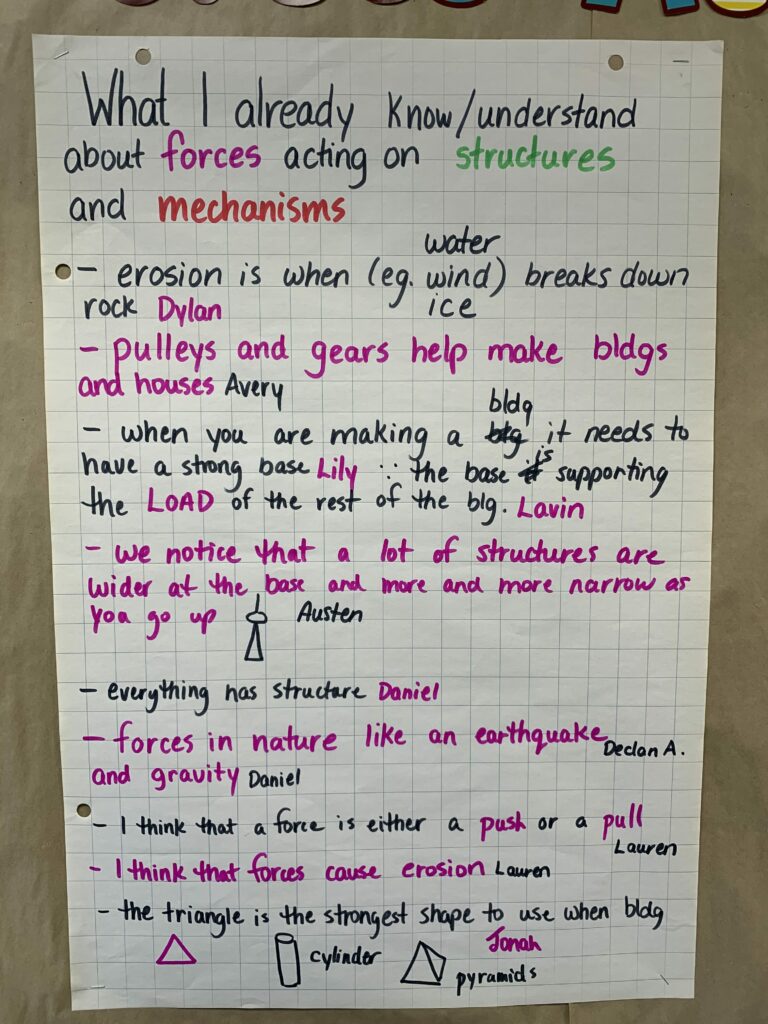 What I already know/understand
about forces acting on structures
and mechanisms
water
- erosion is when (eg. wind) breaks down
rock Dylan ice
- pulleys and gears help make bldgs
and houses Avery
bldg
- when you are making a blg it needs to
have a strong base Lily ∵ the base is supporting
the LOAD of the rest of the blg. Lavin
- we notice that a lot of structures are
wider at the base and more and more narrow as
you go up Austen
- everything has structure Daniel
- forces in nature like an earthquake Declan A.
and gravity Daniel
- I think that a force is either a push or a pull
Lauren
- I think that forces cause erosion Lauren
- the triangle is the strongest shape to use when bldg
Jonah
cylinder
pyramids